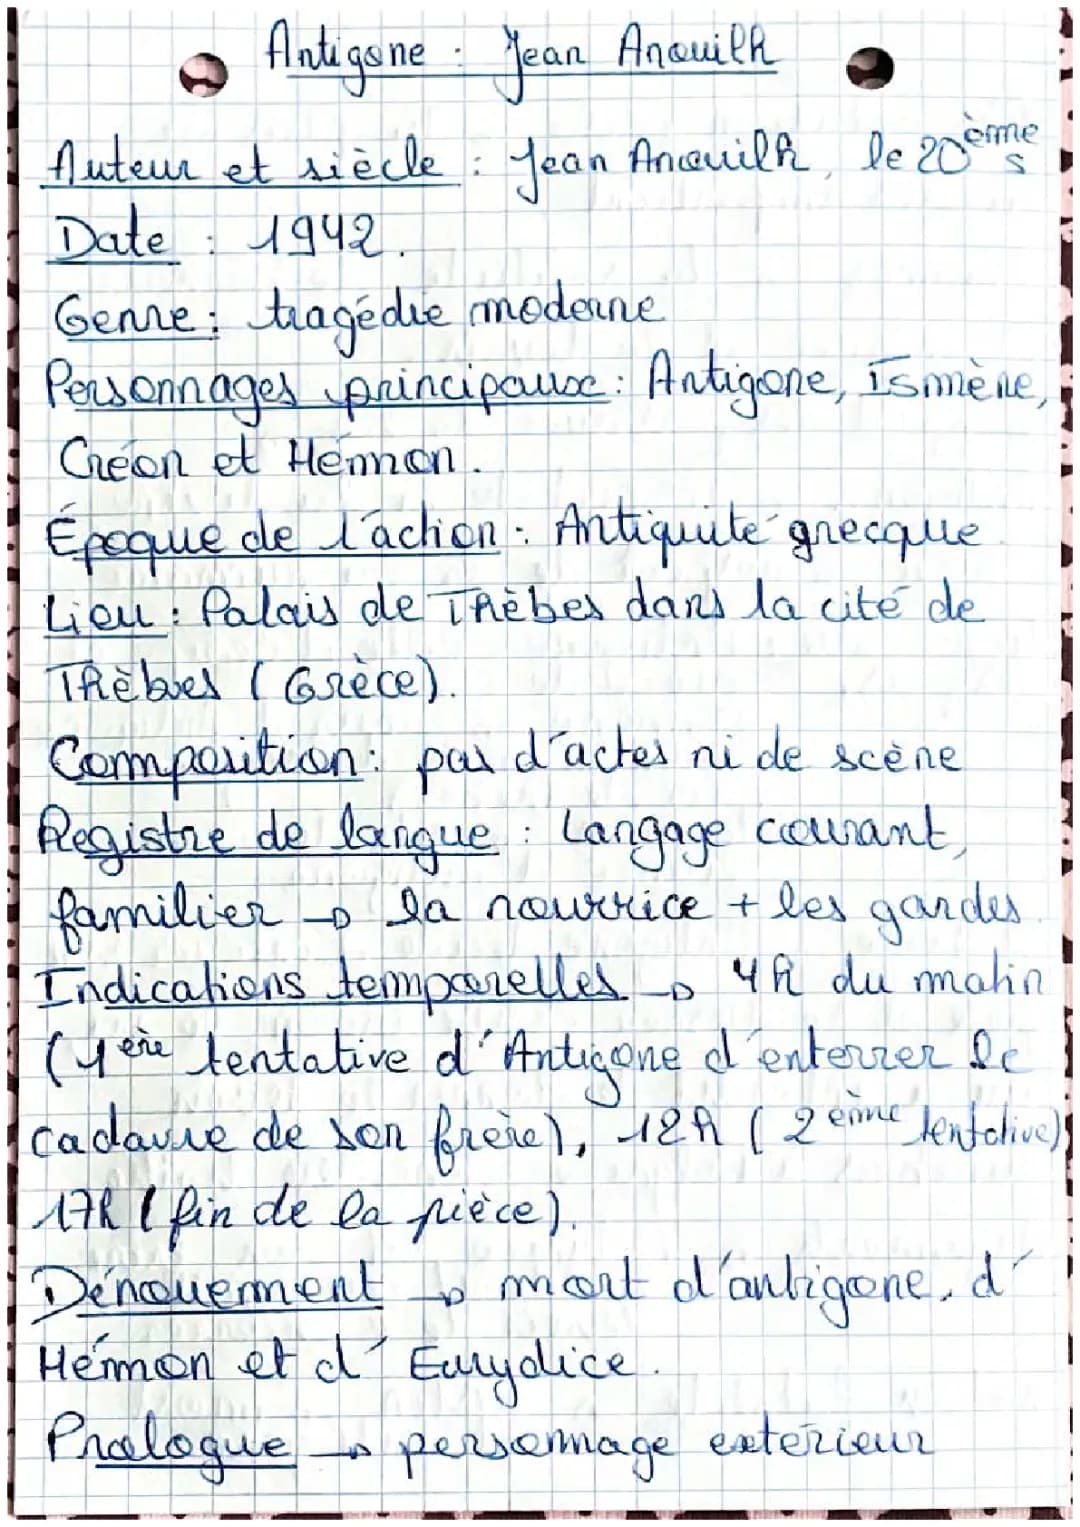 Antigone : Jean Anouilh
Auteur et siècle : Jean Anouilh, le 20ème s
Date : 1942.
Genre : tragédie moderne
Personnages principaux : Antigone, Ismène,
Créon et Hémon.
Époque de l'action : Antiquité grecque
Lieu : Palais de Thèbes dans la cité de
Thèbes (Grèce).
Composition : pas d'actes ni de scène
Registre de langue : Langage courant,
familier → la nourrice + les gardes.
Indications temporelles → 4h du matin
(1ère tentative d'Antigone d'enterrer le
cadavre de son frère), 12h (2ème tentative)
17h (fin de la pièce).
Dénouement → mort d'antigone, d'
Hémon et d'Eurydice.
Prologue → personnage extérieur